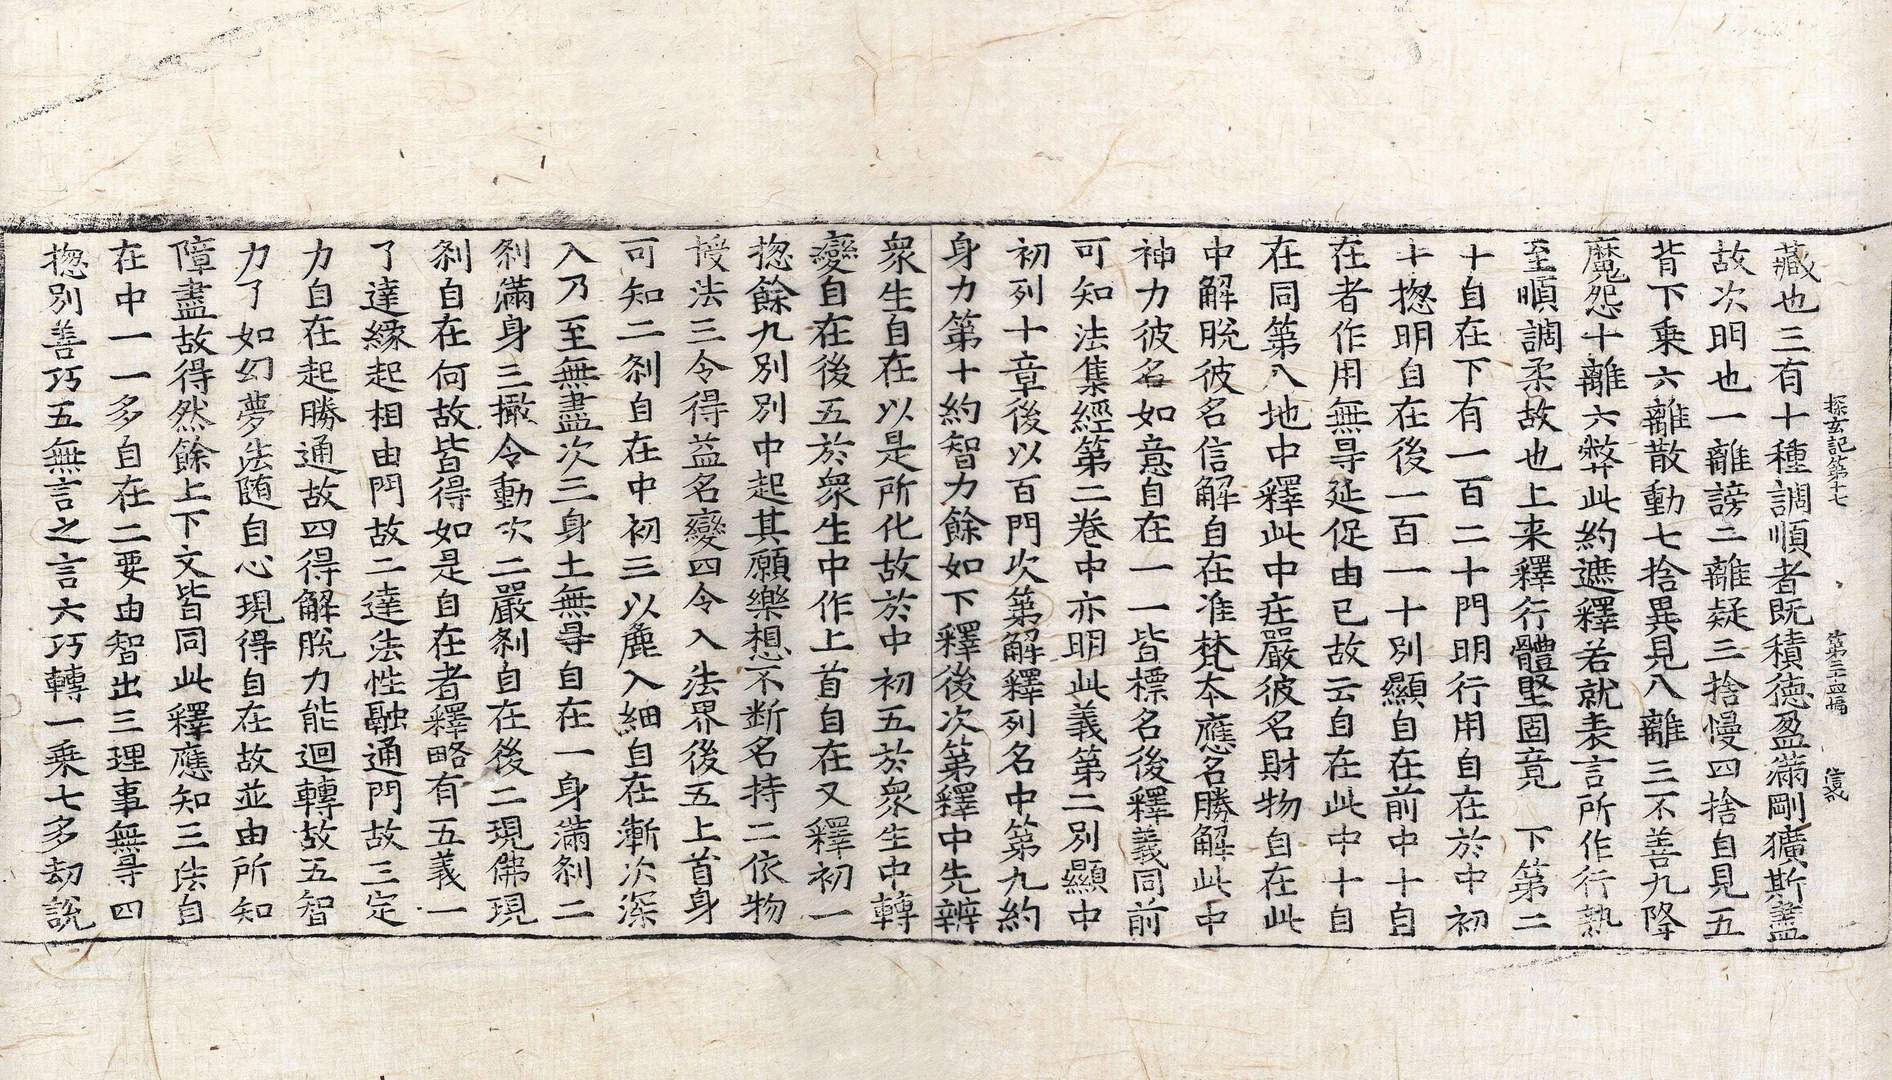 探玄記第十七 第三十四幅 信戒
藏也三有十種調順者既積徳盈滿剛獷斯盡
故次明也一離謗二離疑三捨慢四捨自見五
背下乗六離散動七捨異見八離三不善九降
魔怨十離六弊此約遮釋若就表言所作行熟
至順調柔故也上来釋行體堅固竟 下第二
十自在下有一百二十門明行用自在於中初
十揔明自在後一百一十別顯自在前中十自
在者作用無㝵延促由已故云自在此中十自
在同第八地中釋此中疰嚴彼名財物自在此
中解脱彼名信解自在准梵本應名勝解此中
神力彼名如意自在一一皆標名後釋義同前
可知法集經第二卷中亦明此義第二別顯中
初列十章後以百門次第解釋列名中第九約
身力第十約智力餘如下釋後次第釋中先辨
衆生自在以是所化故於中初五於衆生中轉
變自在後五於衆生中作上首自在又釋初一
揔餘九別別中起其願樂想不断名持二依物
授法三令得益名變四令入法界後五上首身
可知二刹自在中初三以麁入細自在漸次深
入乃至無盡次三身土無㝵自在一身滿刹二
刹滿身三撽令動次二嚴刹自在後二現佛現
刹自在何故皆得如是自在者釋略有五義一
了達緣起相由門故二達法性融通門故三定
力自在起勝通故四得解脱力能迴轉故五智
力了如幻夢法随自心現得自在故並由所知
障盡故得然餘上下文皆同此釋應知三法自
在中一一多自在二要由智出三理事無㝵四
揔別善巧五無言之言六巧轉一乗七多劫說